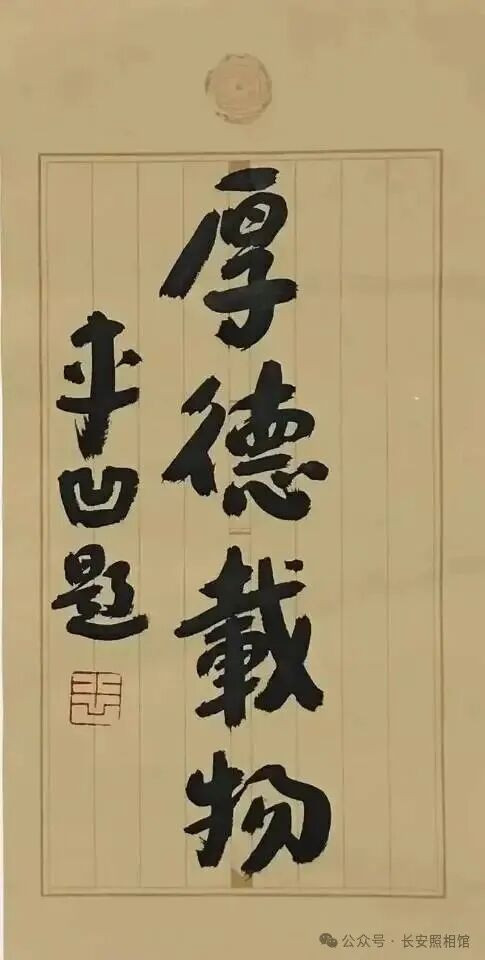 厚德載物
平凹题
公众号·长安照相馆